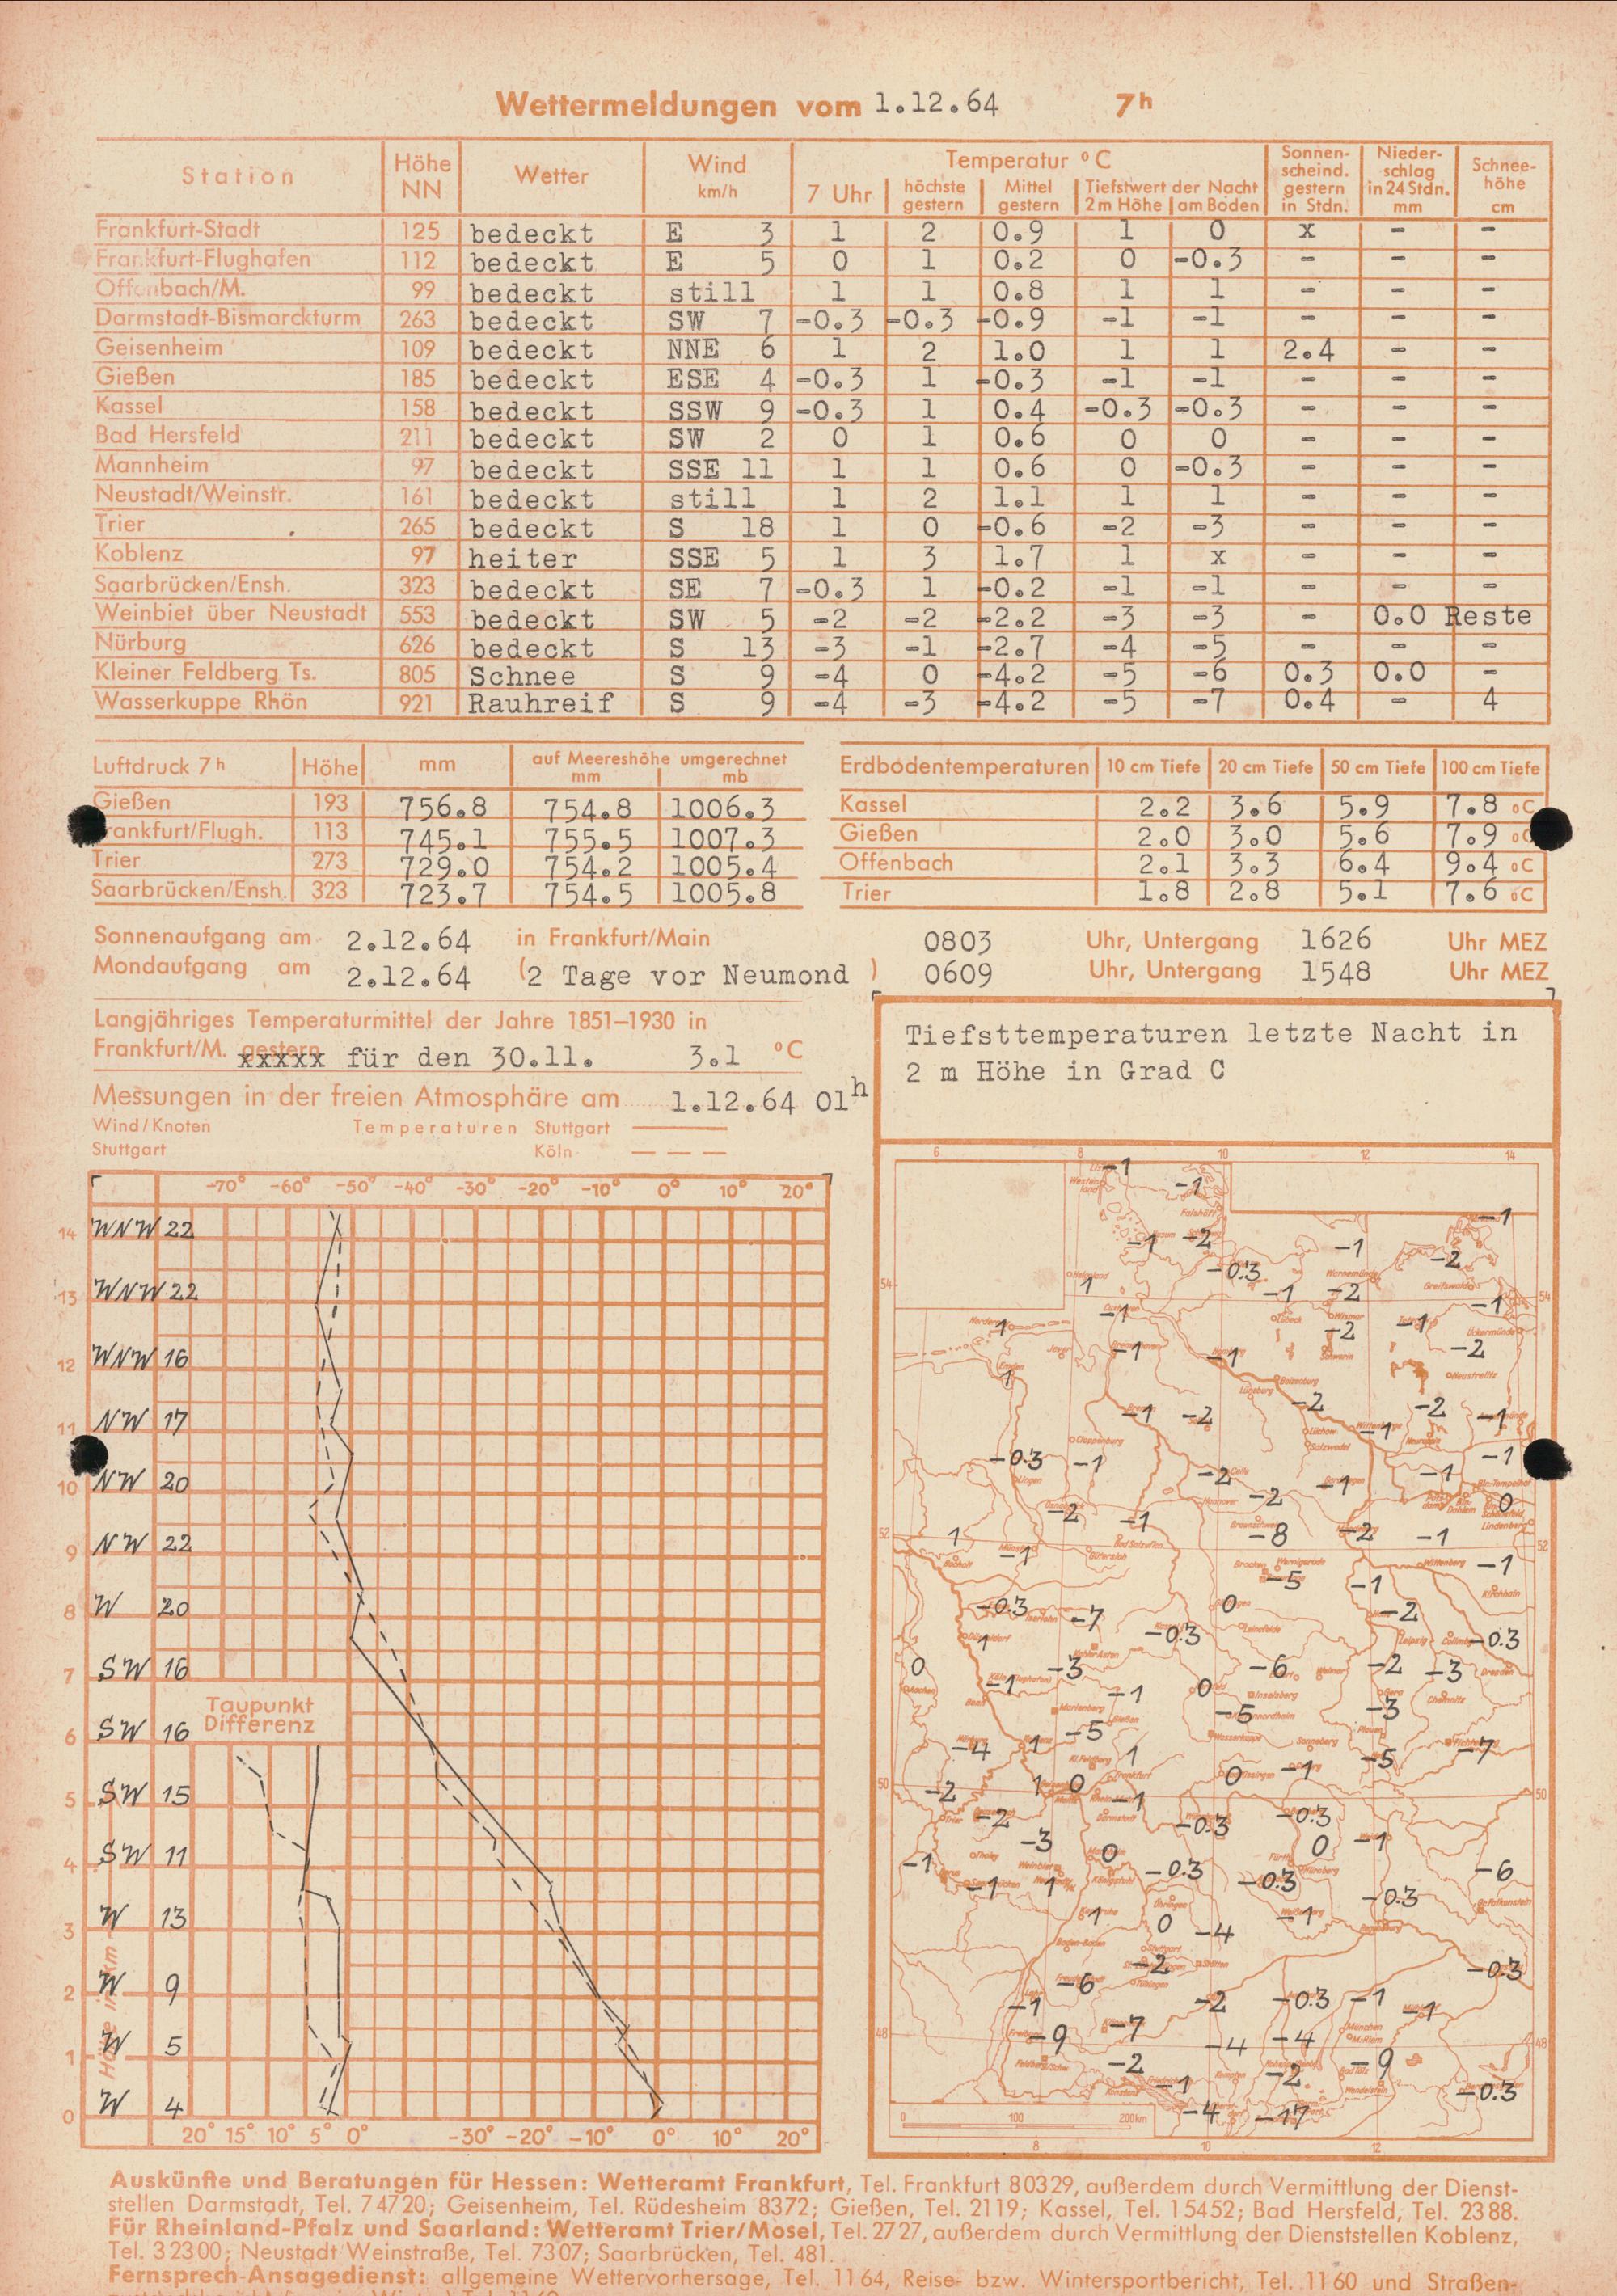 Wettermeldungen vom 1.12.64 7h
Station Höhe NN Wetter Wind km/h Temperatur °C Sonnen-scheind. gestern in Stdn. Nieder-schlag in 24 Stdn. mm Schnee-höhe cm
7 Uhr höchste gestern Mittel gestern Tiefstwert der Nacht 2m Höhe am Boden
Frankfurt-Stadt 125 bedeckt E 3 1 2 0.9 1 0 x - -
Frankfurt-Flughafen 112 bedeckt E 5 0 1 0.2 0 -0.3 - - -
Offenbach/M. 99 bedeckt still 1 1 0.8 1 1 - - -
Darmstadt-Bismarckturm 263 bedeckt SW 7 -0.3 -0.3 -0.9 -1 -1 - - -
Geisenheim 109 bedeckt NNE 6 1 2 1.0 1 1 2.4 - -
Gießen 185 bedeckt ESE 4 -0.3 1 -0.3 -1 -1 - - -
Kassel 158 bedeckt SSW 9 -0.3 1 0.4 -0.3 -0.3 - - -
Bad Hersfeld 211 bedeckt SW 2 0 1 0.6 0 0 - - -
Mannheim 97 bedeckt SSE 11 1 1 0.6 0 -0.3 - - -
Neustadt/Weinstr. 161 bedeckt still 1 2 1.1 1 1 - - -
Trier 265 bedeckt S 18 1 0 -0.6 -2 -3 - - -
Koblenz 97 heiter SSE 5 1 3 1.7 1 x - - -
Saarbrücken/Ensh. 323 bedeckt SE 7 -0.3 1 -0.2 -1 -1 - - -
Weinbiet über Neustadt 553 bedeckt SW 5 -2 -2 -2.2 -3 -3 - 0.0 Reste
Nürburg 626 bedeckt S 13 -3 -1 -2.7 -4 -5 - - -
Kleiner Feldberg Ts. 805 Schnee S 9 -4 0 -4.2 -5 -6 0.3 0.0 -
Wasserkuppe Rhön 921 Rauhreif S 9 -4 -3 -4.2 -5 -7 0.4 - 4
Luftdruck 7h Höhe mm auf Meereshöhe umgerechnet mm mb
Gießen 193 756.8 754.8 1006.3
rankfurt/Flugh. 113 745.1 755.5 1007.3
Trier 273 729.0 754.2 1005.4
Saarbrücken/Ensh. 323 723.7 754.5 1005.8
Erdbodentemperaturen 10 cm Tiefe 20 cm Tiefe 50 cm Tiefe 100 cm Tiefe
Kassel 2.2 3.6 5.9 7.8 °C
Gießen 2.0 3.0 5.6 7.9 °C
Offenbach 2.1 3.3 6.4 9.4 °C
Trier 1.8 2.8 5.1 7.6 °C
Sonnenaufgang am 2.12.64 in Frankfurt/Main 0803 Uhr, Untergang 1626 Uhr MEZ
Mondaufgang am 2.12.64 (2 Tage vor Neumond ) 0609 Uhr, Untergang 1548 Uhr MEZ
Langjähriges Temperaturmittel der Jahre 1851–1930 in
Frankfurt/M. gestern xxxxx für den 30.11. 3.1 °C
Messungen in der freien Atmosphäre am 1.12.64 01h
Wind/Knoten Temperaturen Stuttgart
Stuttgart Köln
-70° -60° -50° -40° -30° -20° -10° 0° 10° 20°
14 WNW 22
13 WNW 22
12 WNW 16
11 NW 17
10 NW 20
9 NW 22
8 W 20
7 SW 16
Taupunkt
Differenz
6 SW 16
5 SW 15
4 SW 11
3 W 13
2 W 9
1 W 5
0 W 4
Höhe in km
20° 15° 10° 5° 0° -30° -20° -10° 0° 10° 20°
Tiefsttemperaturen letzte Nacht in
2 m Höhe in Grad C
6 8 10 12 14
-1
-1
-1
-1 -2 -1 -2
-0.3
1 -1 -2 -1
54 54
-1
1 -2 -1
-1 -1 -2
1
-1 -2 -2 -1 -2 -1
-0.3 -1 -2 -1 -1 -1
-2 -2 0
52 1 -1 -1 -8 -2 -1 52
-5 -1 -1
-0.3 -7 0 -2
1 -0.3 -0.3
0 -3 -6 -2 -3
-1 -1 0
-5 -5 -3
-4 1 1 -5 -7
50 -2 1 0 -1 0 -1 50
-2 -0.3 -0.3
-3 0 0 -1
-1 -0.3 -6
-1 1 -0.3 -0.3
1 0 -4 -1
-2 -0.3
-6
-1 -2 -0.3 -1 -1
48 -9 -7 -4 -4 48
-2 -2 -9
-1 -0.3
-4 -17
0 100 200km
8 10 12
Auskünfte und Beratungen für Hessen: Wetteramt Frankfurt, Tel. Frankfurt 80329, außerdem durch Vermittlung der Dienst-
stellen Darmstadt, Tel. 74720; Geisenheim, Tel. Rüdesheim 8372; Gießen, Tel. 2119; Kassel, Tel. 15452; Bad Hersfeld, Tel. 2388.
Für Rheinland-Pfalz und Saarland: Wetteramt Trier/Mosel, Tel. 2727, außerdem durch Vermittlung der Dienststellen Koblenz,
Tel. 32300; Neustadt Weinstraße, Tel. 7307; Saarbrücken, Tel. 481.
Fernsprech-Ansagedienst: allgemeine Wettervorhersage, Tel. 1164, Reise- bzw. Wintersportbericht, Tel. 1160 und Straßen-